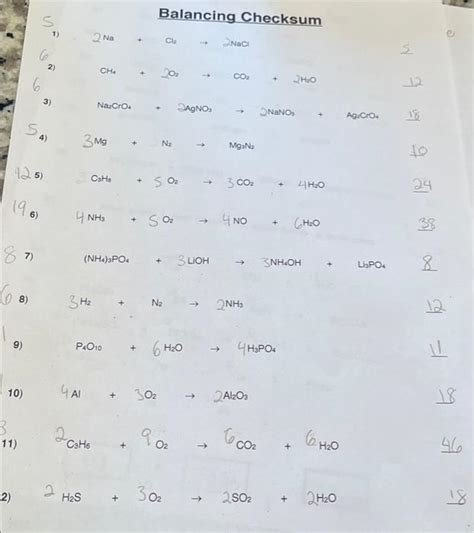 Balancing Checksum
5 1) 2 Na + Cl₂ → 2NaCl 5
6 2) CH₄ + 2O₂ → CO₂ + 2H₂O 12
6 3) Na₂CrO₄ + 2AgNO₃ → 2NaNO₃ + Ag₂CrO₄ 18
5 4) 3Mg + N₂ → Mg₃N₂ 10
5) C₃H₈ + 5 O₂ → 3 CO₂ + 4H₂O 24
19 6) 4 NH₃ + 5 O₂ → 4 NO + 6H₂O 38
8 7) (NH₄)₃PO₄ + 3 LiOH → 3NH₄OH + Li₃PO₄ 8
6 8) 3 H₂ + N₂ → 2NH₃ 12
9) P₄O₁₀ + 6 H₂O → 4H₃PO₄ 11
10) 4 Al + 3O₂ → 2Al₂O₃ 18
3 11) 2 C₃H₆ + 9 O₂ → 6 CO₂ + 6 H₂O 46
2) 2 H₂S + 3 O₂ → 2SO₂ + 2H₂O 18